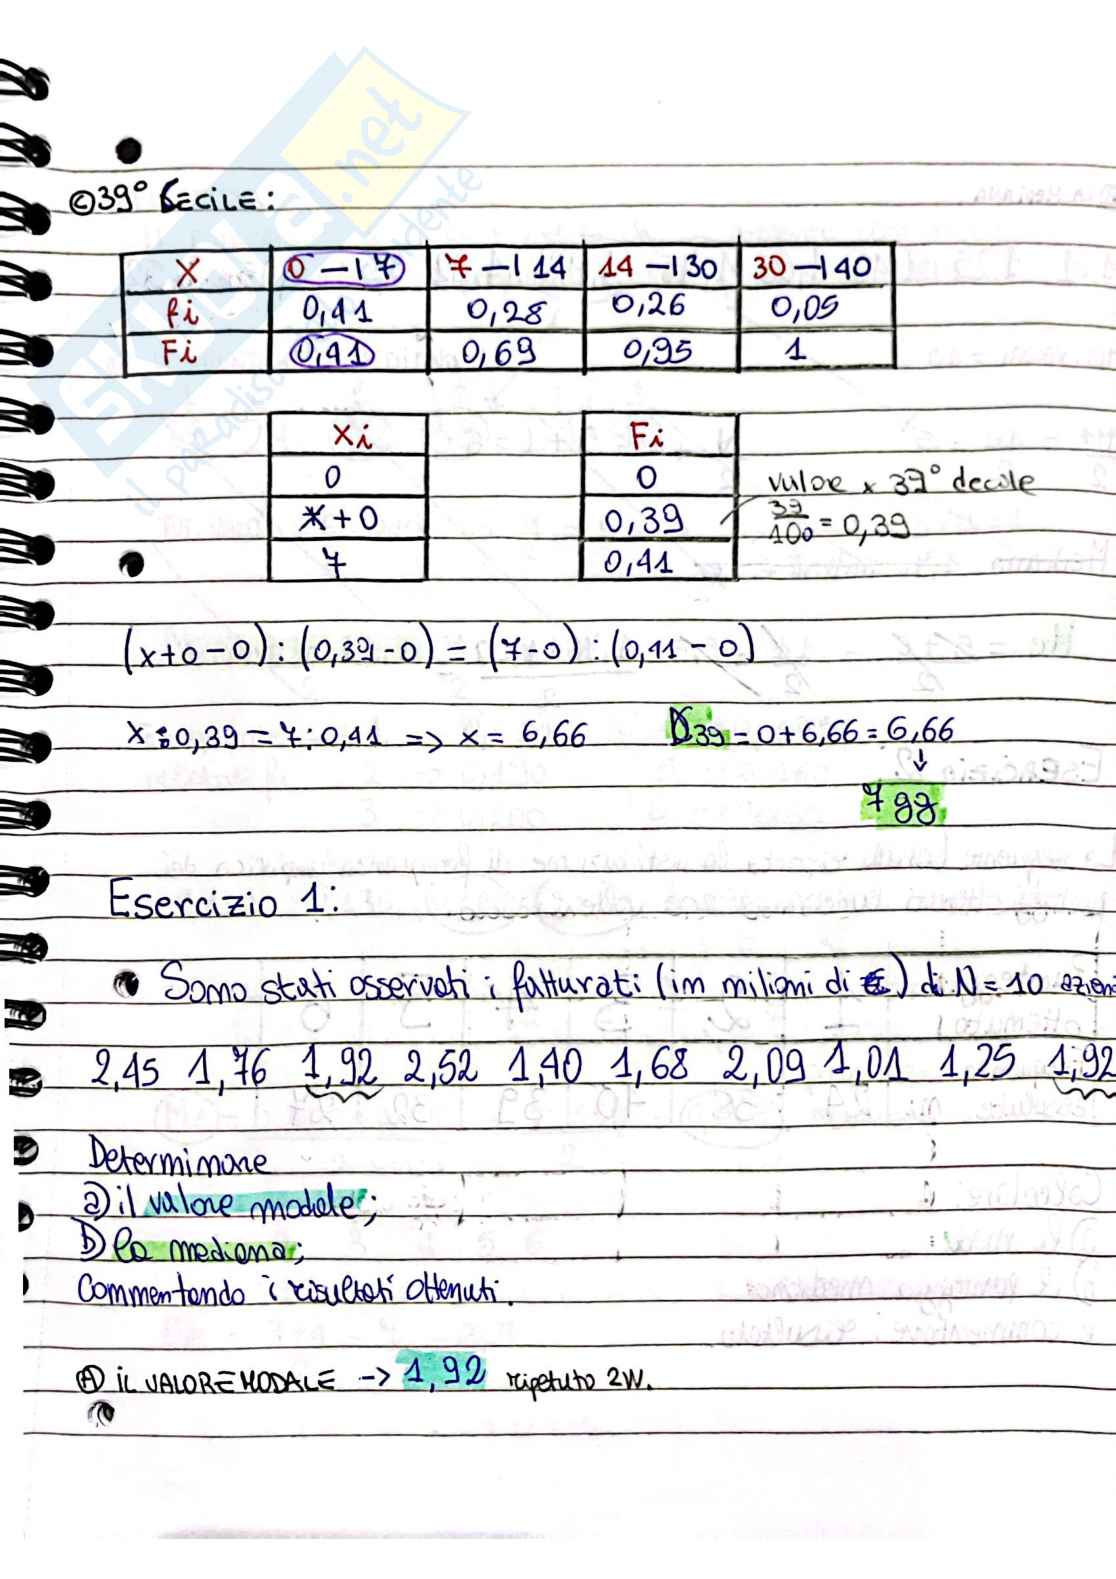 SKUOLA.net
il paradiso dello studente
C 39° DECILE:
X 0 ⊣ 7 7 ⊣ 14 14 ⊣ 30 30 ⊣ 40
fi 0,41 0,28 0,26 0,05
Fi 0,41 0,69 0,95 1
xi Fi
0 0
x+0 0,39 valore x 39° decile
39/100 = 0,39
7 0,41
(x+0-0) : (0,39-0) = (7-0) : (0,41-0)
x : 0,39 = 7 : 0,41 => x = 6,66 D39 = 0+6,66 = 6,66
↓
7 gg
Esercizio 1:
• Sono stati osservati i fatturati (in milioni di €) di N = 10 azien
2,45 1,76 1,92 2,52 1,40 1,68 2,09 1,01 1,25 1,92
Determinare
a) il valore modale;
b) la mediana;
Commentando i risultati ottenuti.
A IL VALORE MODALE -> 1,92 ripetuto 2W.